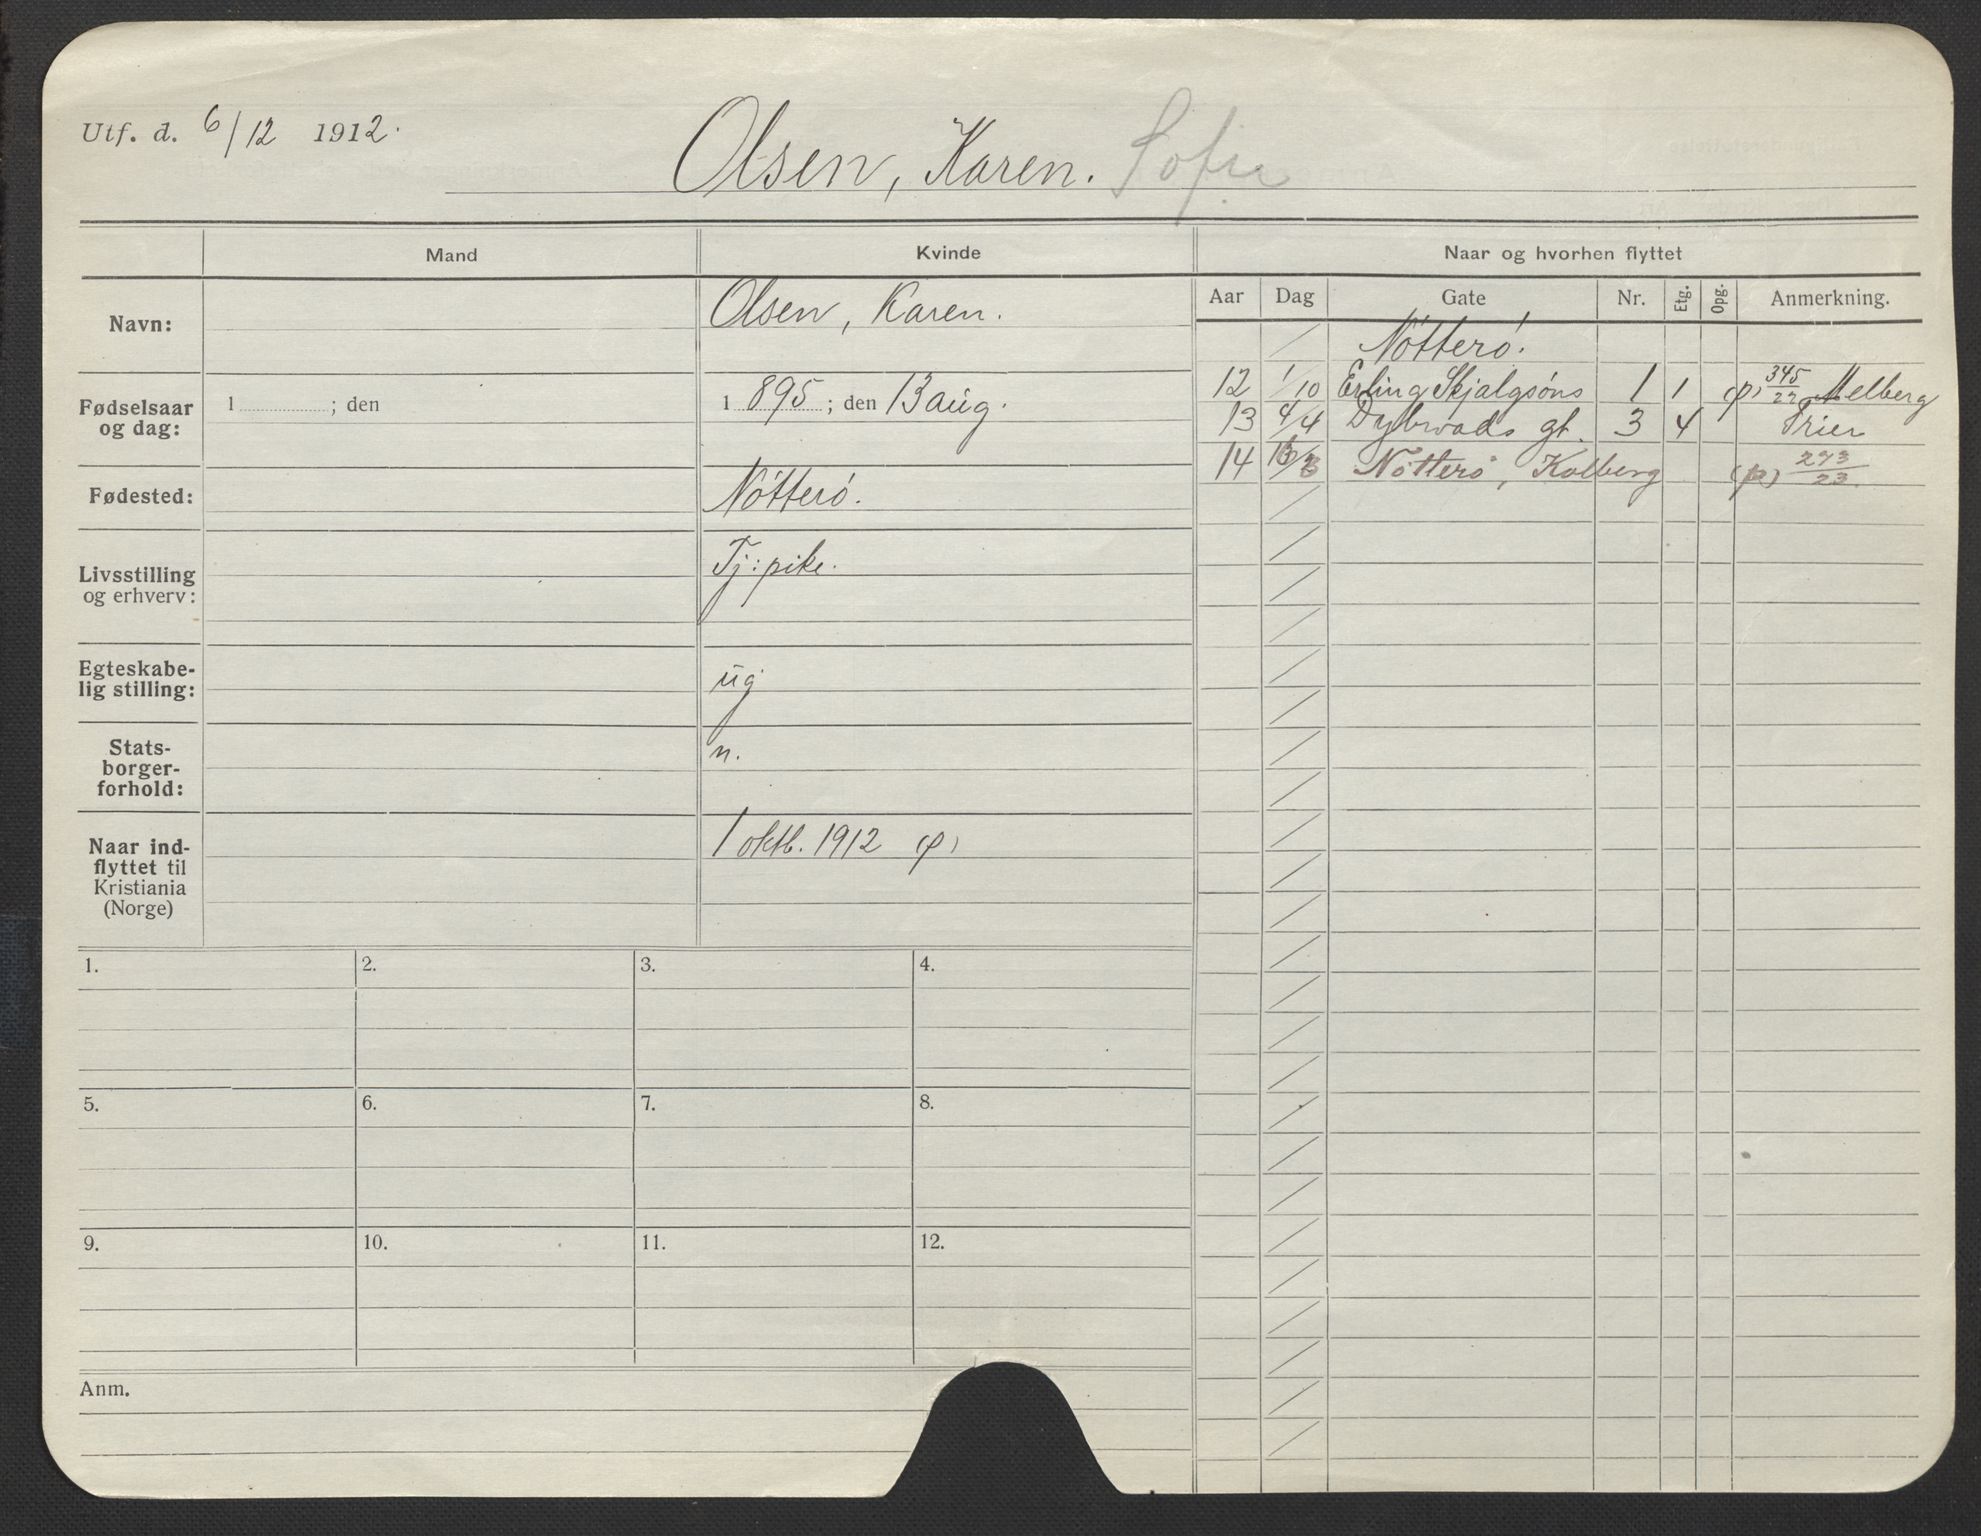 Utf. d. 6/12 1912.
Olsen, Karen. Sofie
Mand
Kvinde
Naar og hvorhen flyttet
Aar Dag Gate Nr. Etg. Opg. Anmerkning.
Navn:
Olsen, Karen.
Fødselsaar og dag:
1 ; den
1 895 ; den 13 aug.
Fødested:
Nötterö.
Livsstilling
og erhverv:
Tj: pike.
Egteskabe-
lig stilling:
ug
Stats-
borger-
forhold:
n.
Naar ind-
flyttet til
Kristiania
(Norge)
1 oktb. 1912 (p)
Nötterö.
12 1/10 Erling Skjalgsöns 1 1 (p) 345/27 Melberg
13 4/4 Dybwads gt. 3 4 Trier
14 Nötterö, Kolberg (p) 273/23.
1. 2. 3. 4.
5. 6. 7. 8.
9. 10. 11. 12.
Anm.